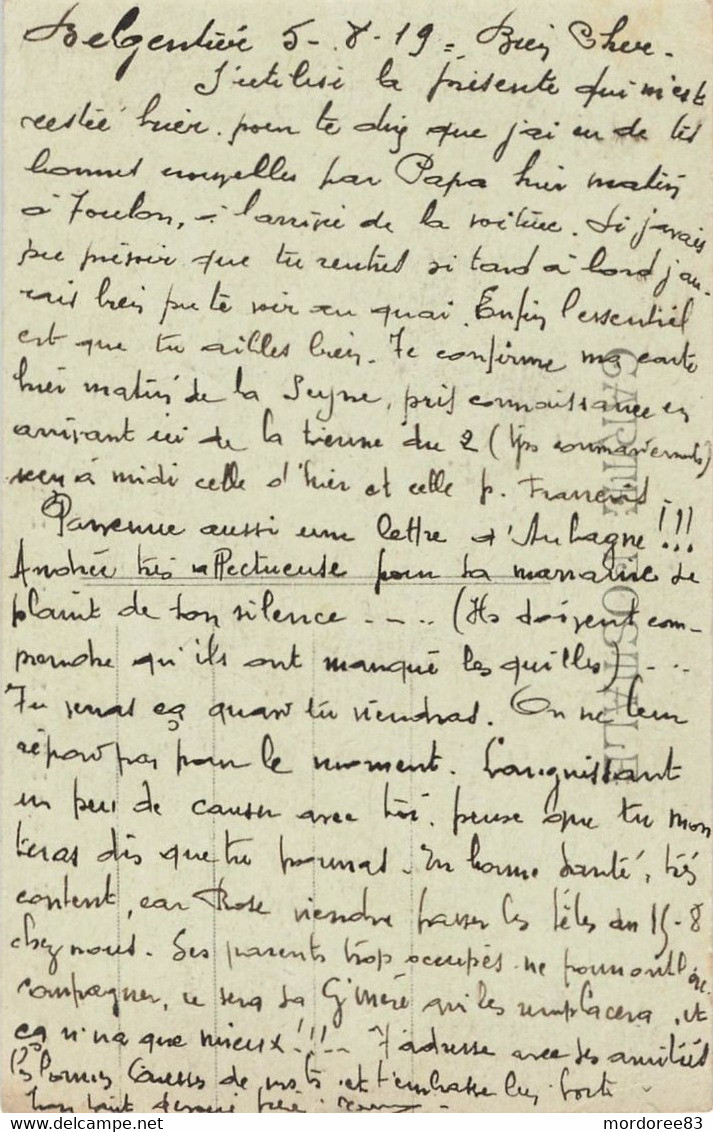 Belgentier 5-8-19 = Bien Cher -
J'utilise la présente qui m'est
restée hier pour te dire que j'ai eu de tes
bonnes nouvelles par Papa hier matin
à Toulon, à l'arrivée de la voiture. Si j'avais
pu prévoir que tu rentres si tard à bord j'au-
rais bien pu te voir au quai. Enfin l'essentiel
est que tu ailles bien. Je confirme ma carte
hier matin de la Seyne, pris connaissance en
arrivant ici de la tienne du 2 (
reçu à midi celle d'hier et celle p. François.
Parvenue aussi une lettre d'Aubagne!!!
Andrée très affectueuse pour sa marraine se
plaint de ton silence - - .. (Ils doivent com-
prendre qu'ils ont manqué les quilles) - ..
Tu verras ça quand tu viendras. On ne leur
répond pas pour le moment. Languissant
un peu de causer avec toi, pense que tu mon
teras dès que tu pourras. En bonne santé, très
content, car Rose viendra passer les fêtes du 15-8
chez nous. Ses parents trop occupés ne pourront l'ac-
compagner, ce sera sa G'mère qui les remplacera, et
ça n'ira que mieux!!! - T'adresse avec ses amitiés
les bonnes caresses de et t'embrasse bien
ton
CARTE POSTALE
mordoree83